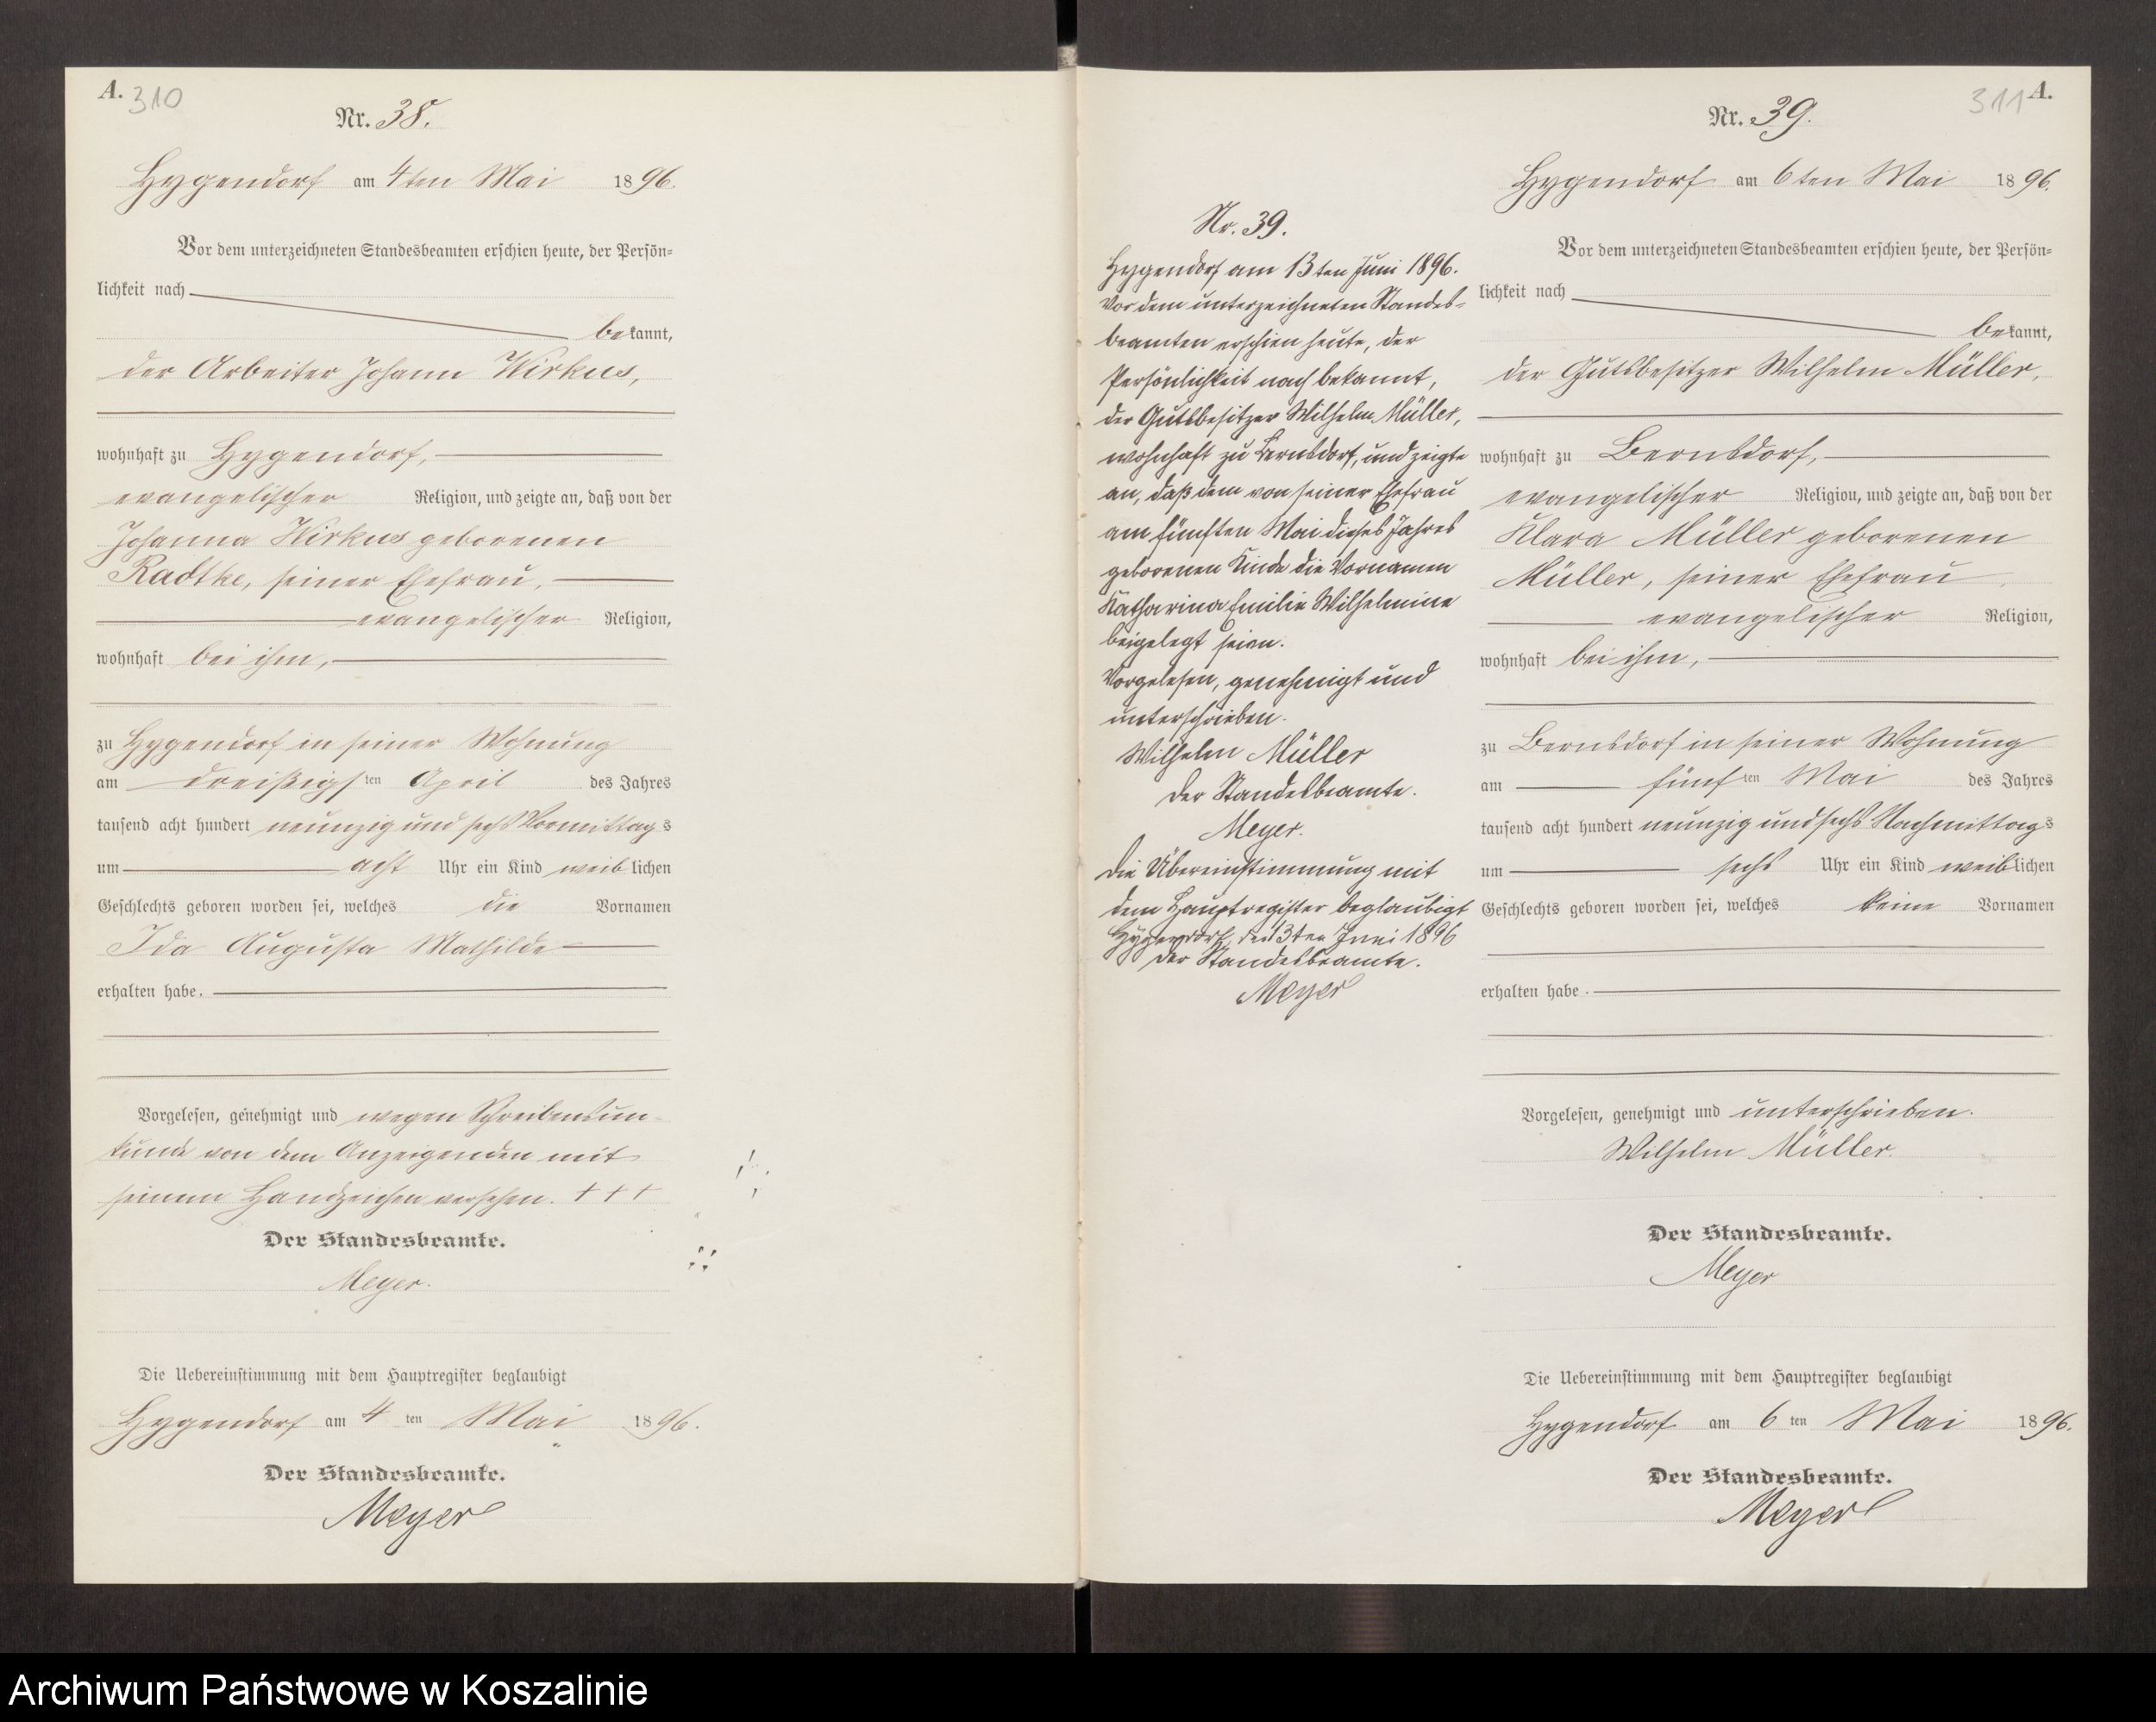 A. 310
Nr. 38.
Hygendorf am 4ten Mai 1896.
Vor dem unterzeichneten Standesbeamten erschien heute, der Persön=
lichkeit nach
bekannt,
der Arbeiter Johann Wirkus,
wohnhaft zu Hygendorf,
evangelischer Religion, und zeigte an, daß von der
Johanna Wirkus geborenen
Radtke, seiner Ehefrau,
evangelischer Religion,
wohnhaft bei ihm,
zu Hygendorf in seiner Wohnung
am dreißigsten April des Jahres
tausend acht hundert neunzig und sechs Vormittags
um acht Uhr ein Kind weiblichen
Geschlechts geboren worden sei, welches die Vornamen
Ida Augusta Mathilde
erhalten habe.
Vorgelesen, genehmigt und wegen Schreibensun-
kunde von dem Anzeigenden mit
seinem Handzeichen versehen. +++
Der Standesbeamte.
Meyer.
Die Uebereinstimmung mit dem Hauptregister beglaubigt
Hygendorf am 4 ten Mai 1896.
Der Standesbeamte.
Meyer
Nr. 39.
Hygendorf am 13ten Juni 1896.
Vor dem unterzeichneten Standes=
beamten erschien heute, der
Persönlichkeit nach bekannt,
der Gutsbesitzer Wilhelm Müller,
wohnhaft zu Bernsdorf, und zeigte
an, daß dem von seiner Ehefrau
am fünften Mai dieses Jahres
geborenen Kinde die Vornamen
Katharina Emilie Wilhelmine
beigelegt seien.
Vorgelesen, genehmigt und
unterschrieben.
Wilhelm Müller
Der Standesbeamte.
Meyer.
Die Übereinstimmung mit
dem Hauptregister beglaubigt
Hygendorf, den 13ten Juni 1896
Der Standesbeamte.
Meyer
311 A.
Nr. 39.
Hygendorf am 6ten Mai 1896.
Vor dem unterzeichneten Standesbeamten erschien heute, der Persön=
lichkeit nach
bekannt,
der Gutsbesitzer Wilhelm Müller,
wohnhaft zu Bernsdorf,
evangelischer Religion, und zeigte an, daß von der
Klara Müller geborenen
Müller, seiner Ehefrau
evangelischer Religion,
wohnhaft bei ihm,
zu Bernsdorf in seiner Wohnung
am fünften Mai des Jahres
tausend acht hundert neunzig und sechs Nachmittags
um sechs Uhr ein Kind weiblichen
Geschlechts geboren worden sei, welches keine Vornamen
erhalten habe.
Vorgelesen, genehmigt und unterschrieben.
Wilhelm Müller.
Der Standesbeamte.
Meyer
Die Uebereinstimmung mit dem Hauptregister beglaubigt
Hygendorf am 6 ten Mai 1896.
Der Standesbeamte.
Meyer
Archiwum Państwowe w Koszalinie